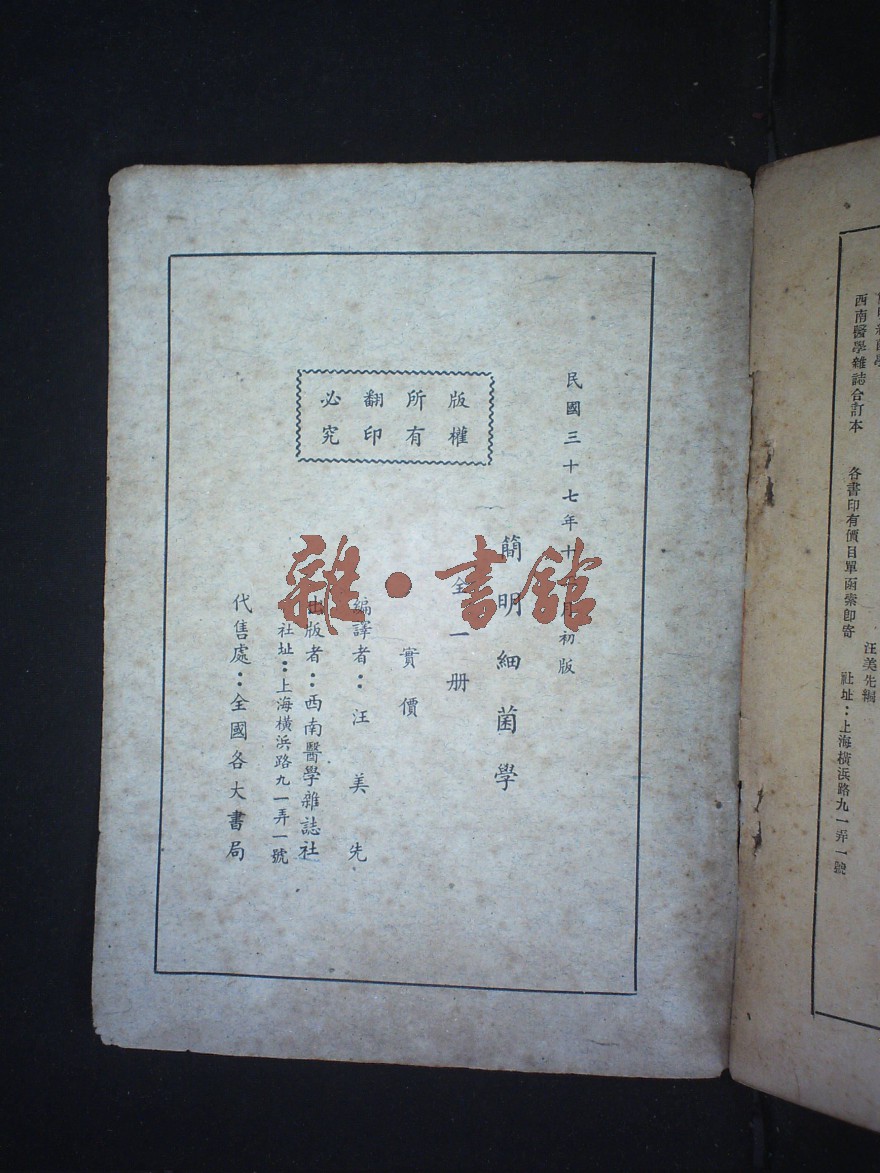 西南醫學雜誌合訂本 各書印有價目單函索即寄 社址：上海橫浜路九一弄一號
汪美先編
民國三十七年十 月初版
版權所有翻印必究
簡明細菌學
全一册
實價
編譯者：汪美先
出版者：西南醫學雜誌社
社址：上海橫浜路九一弄一號
代售處：全國各大書局
雜·書館